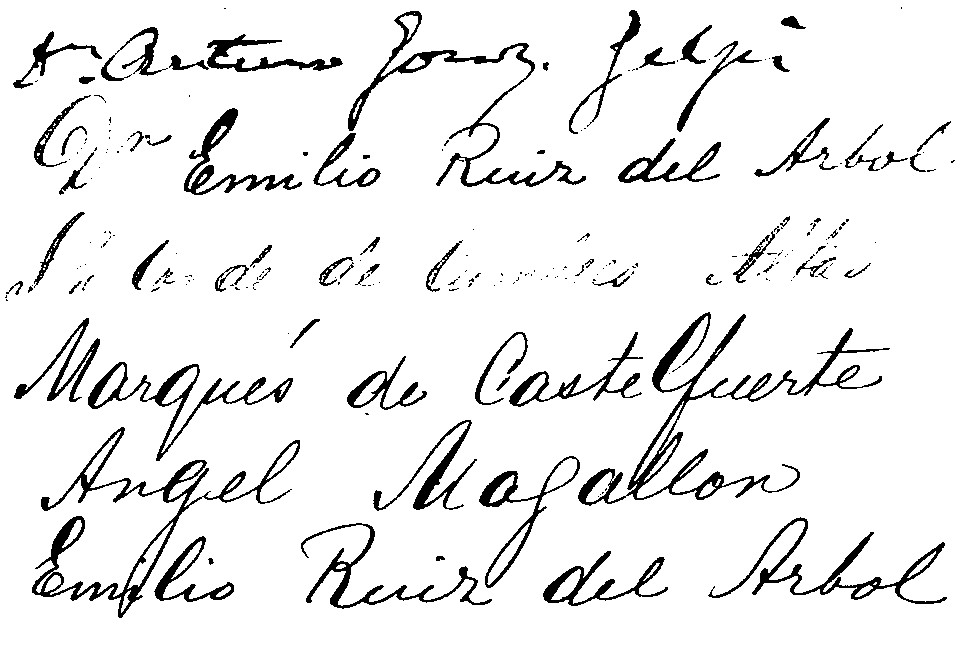 Dn. Arturo Gonz. Gelpi
Dn Emilio Ruiz del Arbol
Conde de Cumbres Altas
Marqués de Castelfuerte
Angel Magallon
Emilio Ruiz del Arbol